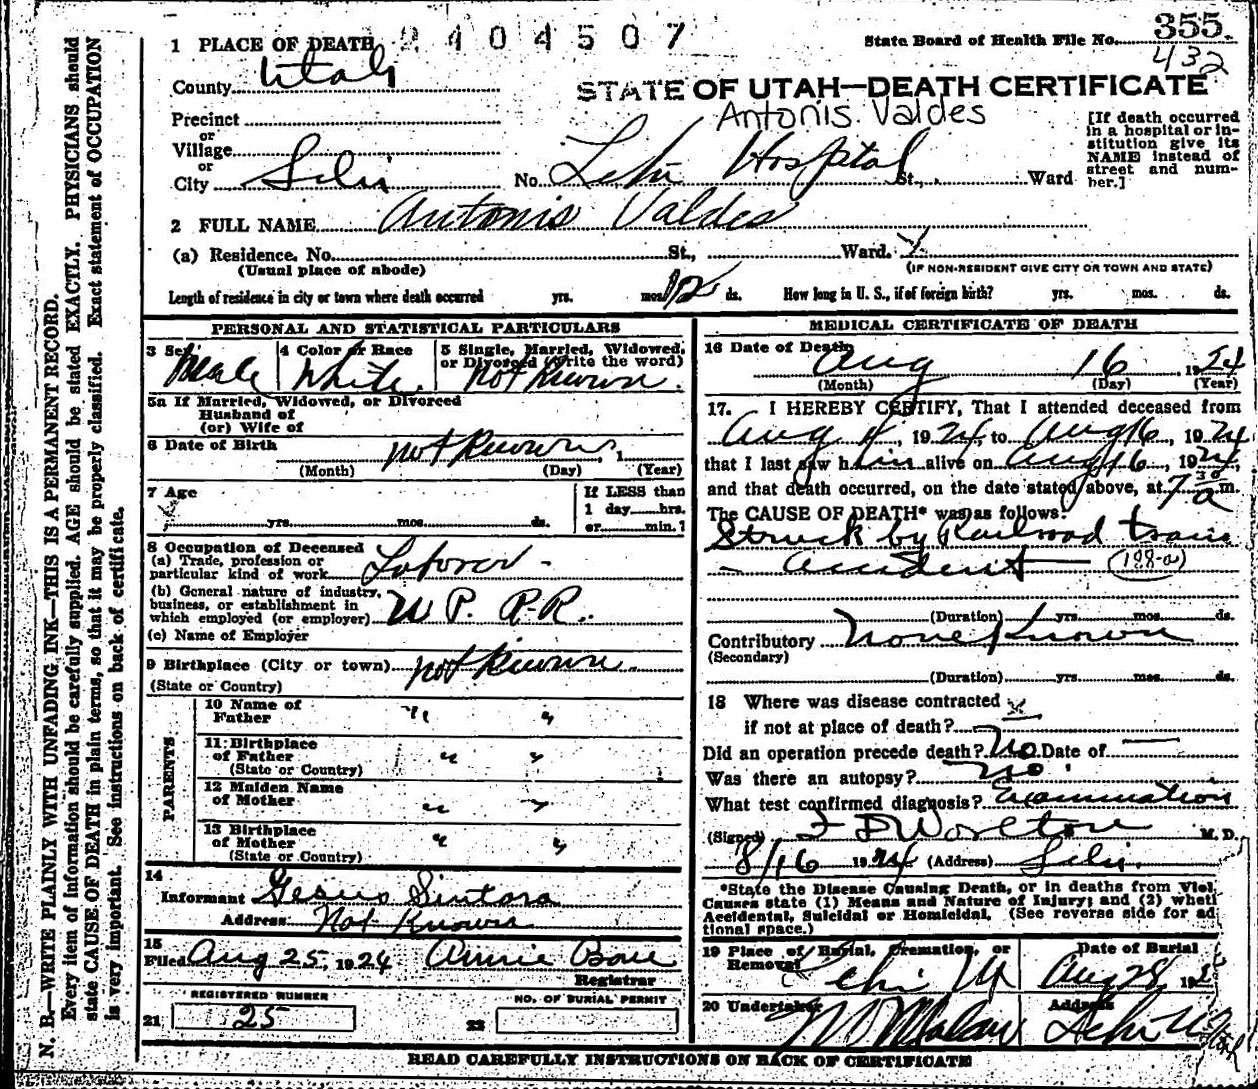 2404507
State Board of Health File No. 355.
432
1 PLACE OF DEATH
County Utah
STATE OF UTAH—DEATH CERTIFICATE
Antonis Valdes
Precinct
or
Village
or
City Lehi No. Lehi Hospital St., Ward
[If death occurred
in a hospital or in-
stitution give its
NAME instead of
street and num-
ber.]
2 FULL NAME Antonis Valdes
(a) Residence. No. St., Ward.
(Usual place of abode) (IF NON-RESIDENT GIVE CITY OR TOWN AND STATE)
Length of residence in city or town where death occurred yrs. mos. 12 ds. How long in U. S., if of foreign birth? yrs. mos. ds.
PERSONAL AND STATISTICAL PARTICULARS
3 Sex Male
4 Color or Race White
5 Single, Married, Widowed,
or Divorced (write the word)
Not Known
5a If Married, Widowed, or Divorced
Husband of
(or) Wife of
6 Date of Birth not Known, 1
(Month) (Day) (Year)
7 Age
yrs. mos. ds.
If LESS than
1 day hrs.
or min.?
8 Occupation of Deceased
(a) Trade, profession or
particular kind of work Laborer -
(b) General nature of industry,
business, or establishment in
which employed (or employer) W P. R-R.
(c) Name of Employer
9 Birthplace (City or town) not Known
(State or Country)
PARENTS
10 Name of
Father " "
11 Birthplace
of Father " "
(State or Country)
12 Maiden Name
of Mother " "
13 Birthplace
of Mother " "
(State or Country)
14
Informant Gesus Sintora
Address Not Known
15
Filed Aug 25, 1924 Annie Bone
Registrar
REGISTERED NUMBER
21 25
NO. OF BURIAL PERMIT
22
MEDICAL CERTIFICATE OF DEATH
16 Date of Death Aug 16, 1924
(Month) (Day) (Year)
17. I HEREBY CERTIFY, That I attended deceased from
Aug 4, 1924, to Aug 16, 1924
that I last saw him alive on Aug 16, 1924,
and that death occurred, on the date stated above, at 7 30 a m.
The CAUSE OF DEATH* was as follows:
Struck by Railroad train
- accident - (188-a)
(Duration) yrs. mos. ds.
Contributory None Known
(Secondary)
(Duration) yrs. mos. ds.
18 Where was disease contracted
if not at place of death?
Did an operation precede death? No Date of —
Was there an autopsy? no
What test confirmed diagnosis? Examination
(Signed) F D Worlton M. D.
8/16 1924 (Address) Lehi.
*State the Disease Causing Death, or in deaths from Viol
Causes state (1) Means and Nature of Injury; and (2) wheth
Accidental, Suicidal or Homicidal. (See reverse side for ad
tional space.)
19 Place of Burial, Cremation, or
Removal Lehi Ut
Date of Burial
Aug 28, 192
20 Undertaker
Address
Lehi Utah
READ CAREFULLY INSTRUCTIONS ON BACK OF CERTIFICATE
N. B.—WRITE PLAINLY WITH UNFADING INK—THIS IS A PERMANENT RECORD.
Every item of information should be carefully supplied. AGE should be stated EXACTLY. PHYSICIANS should
state CAUSE OF DEATH in plain terms, so that it may be properly classified. Exact statement of OCCUPATION
is very important. See instructions on back of certificate.